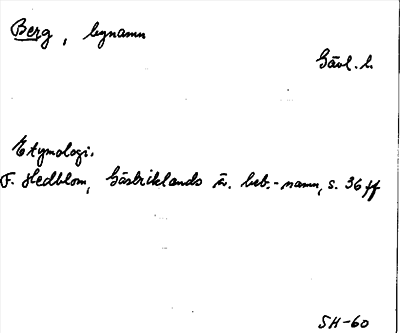 Berg, bynamn
Gävl. l.
Etymologi.
F. Hedblom, Gästriklands ä. beb.-namn, s. 36 ff
SH-60